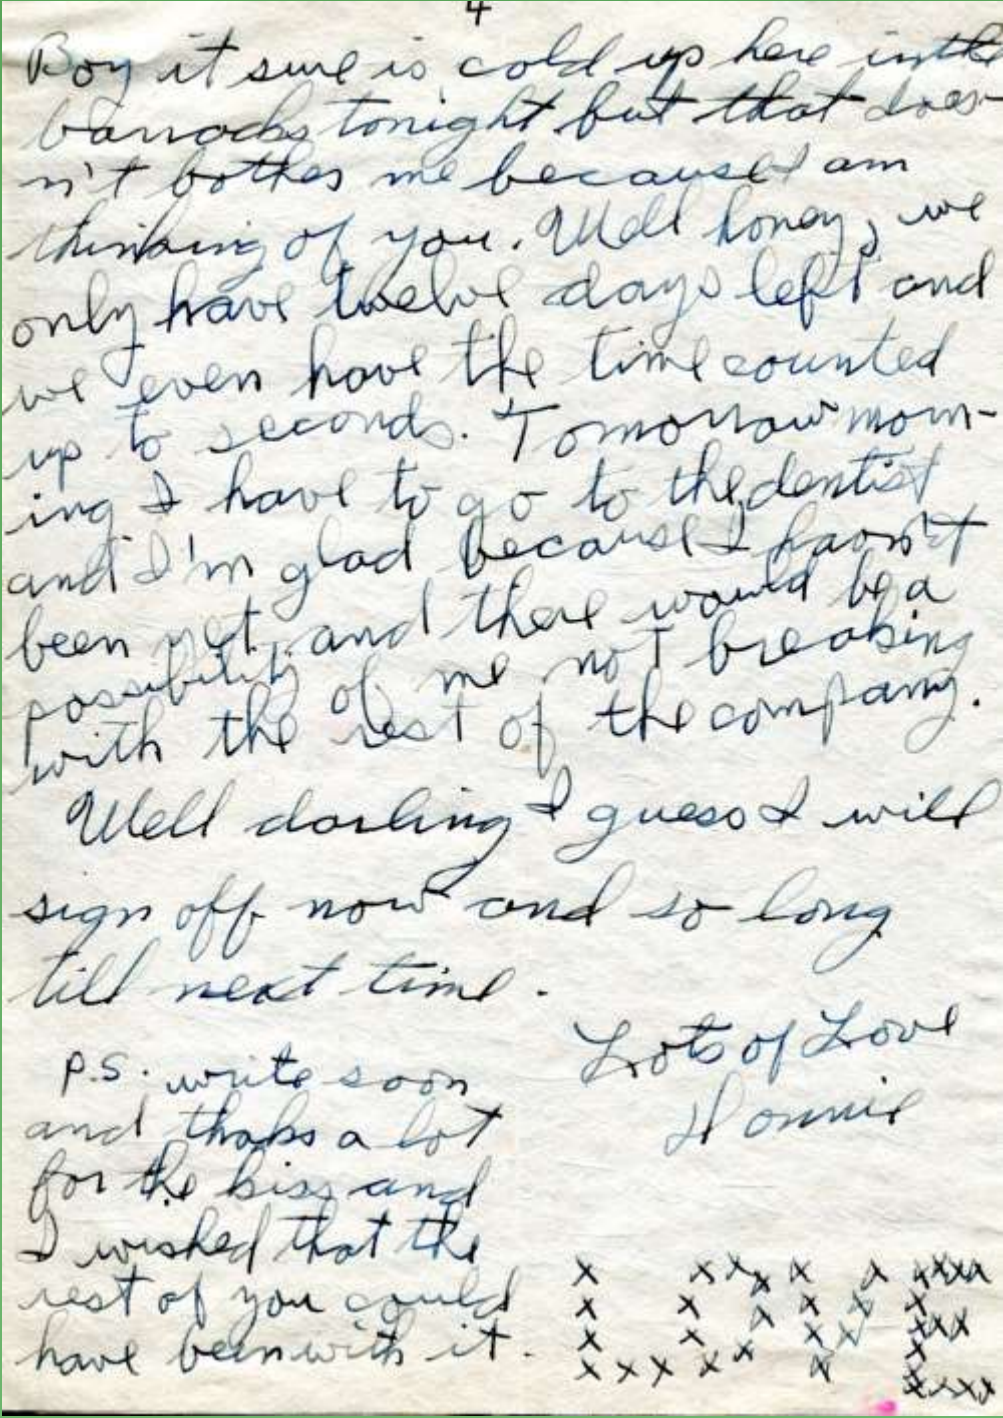 4
Boy it sure is cold up here in the
barracks tonight but that does-
n't bother me because I am
thinking of you. Well honey, we
only have twelve days left and
we even have the time counted
up to seconds. Tomorrow morn-
ing I have to go to the dentist
and I'm glad because I haven't
been yet, and there would be a
possibility of me not breaking
with the rest of the company.
Well darling I guess I will
sign off now and so long
till next time.
Lots of Love
P.S. write soon
and thaks a lot
for the kiss and
I wished that the
rest of you could
have been with it.